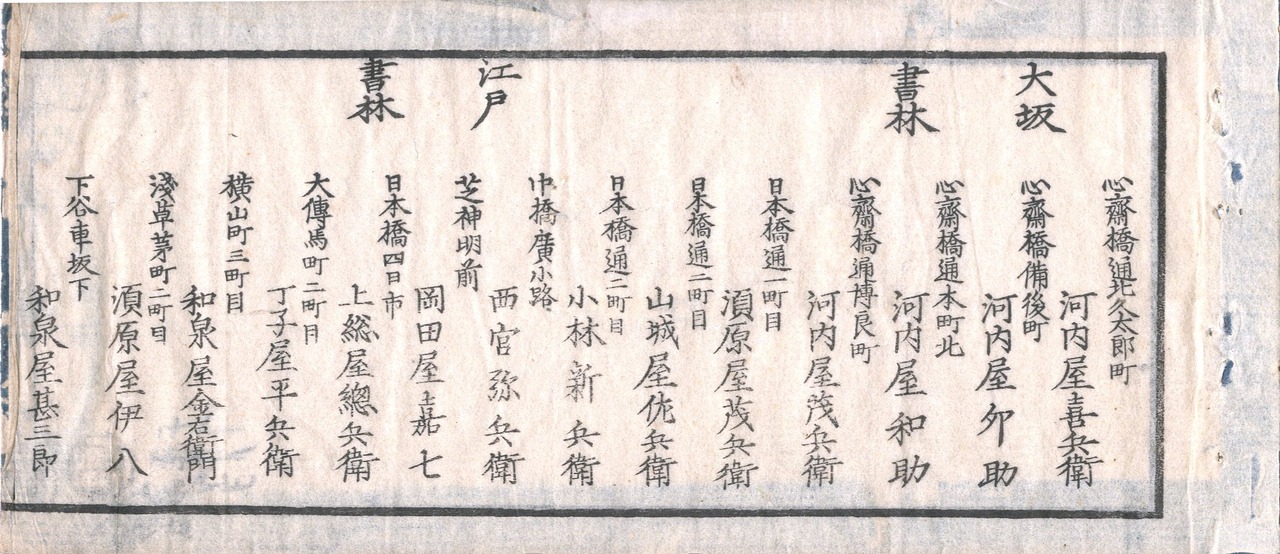 大坂
書林
心齋橋通北久太郎町
河内屋喜兵衛
心齋橋備後町
河内屋卯助
心齋橋通本町北
河内屋和助
心齋橋通博良町
河内屋茂兵衛
江戸
書林
日本橋通一町目
須原屋茂兵衛
日本橋通二町目
山城屋佐兵衛
日本橋通二町目
小林新兵衛
中橋廣小路
西宮弥兵衛
芝神明前
岡田屋嘉七
日本橋四日市
上総屋總兵衛
大傳馬町二町目
丁子屋平兵衛
横山町三町目
和泉屋金右衛門
淺草茅町二町目
須原屋伊八
下谷車坂下
和泉屋甚三郎